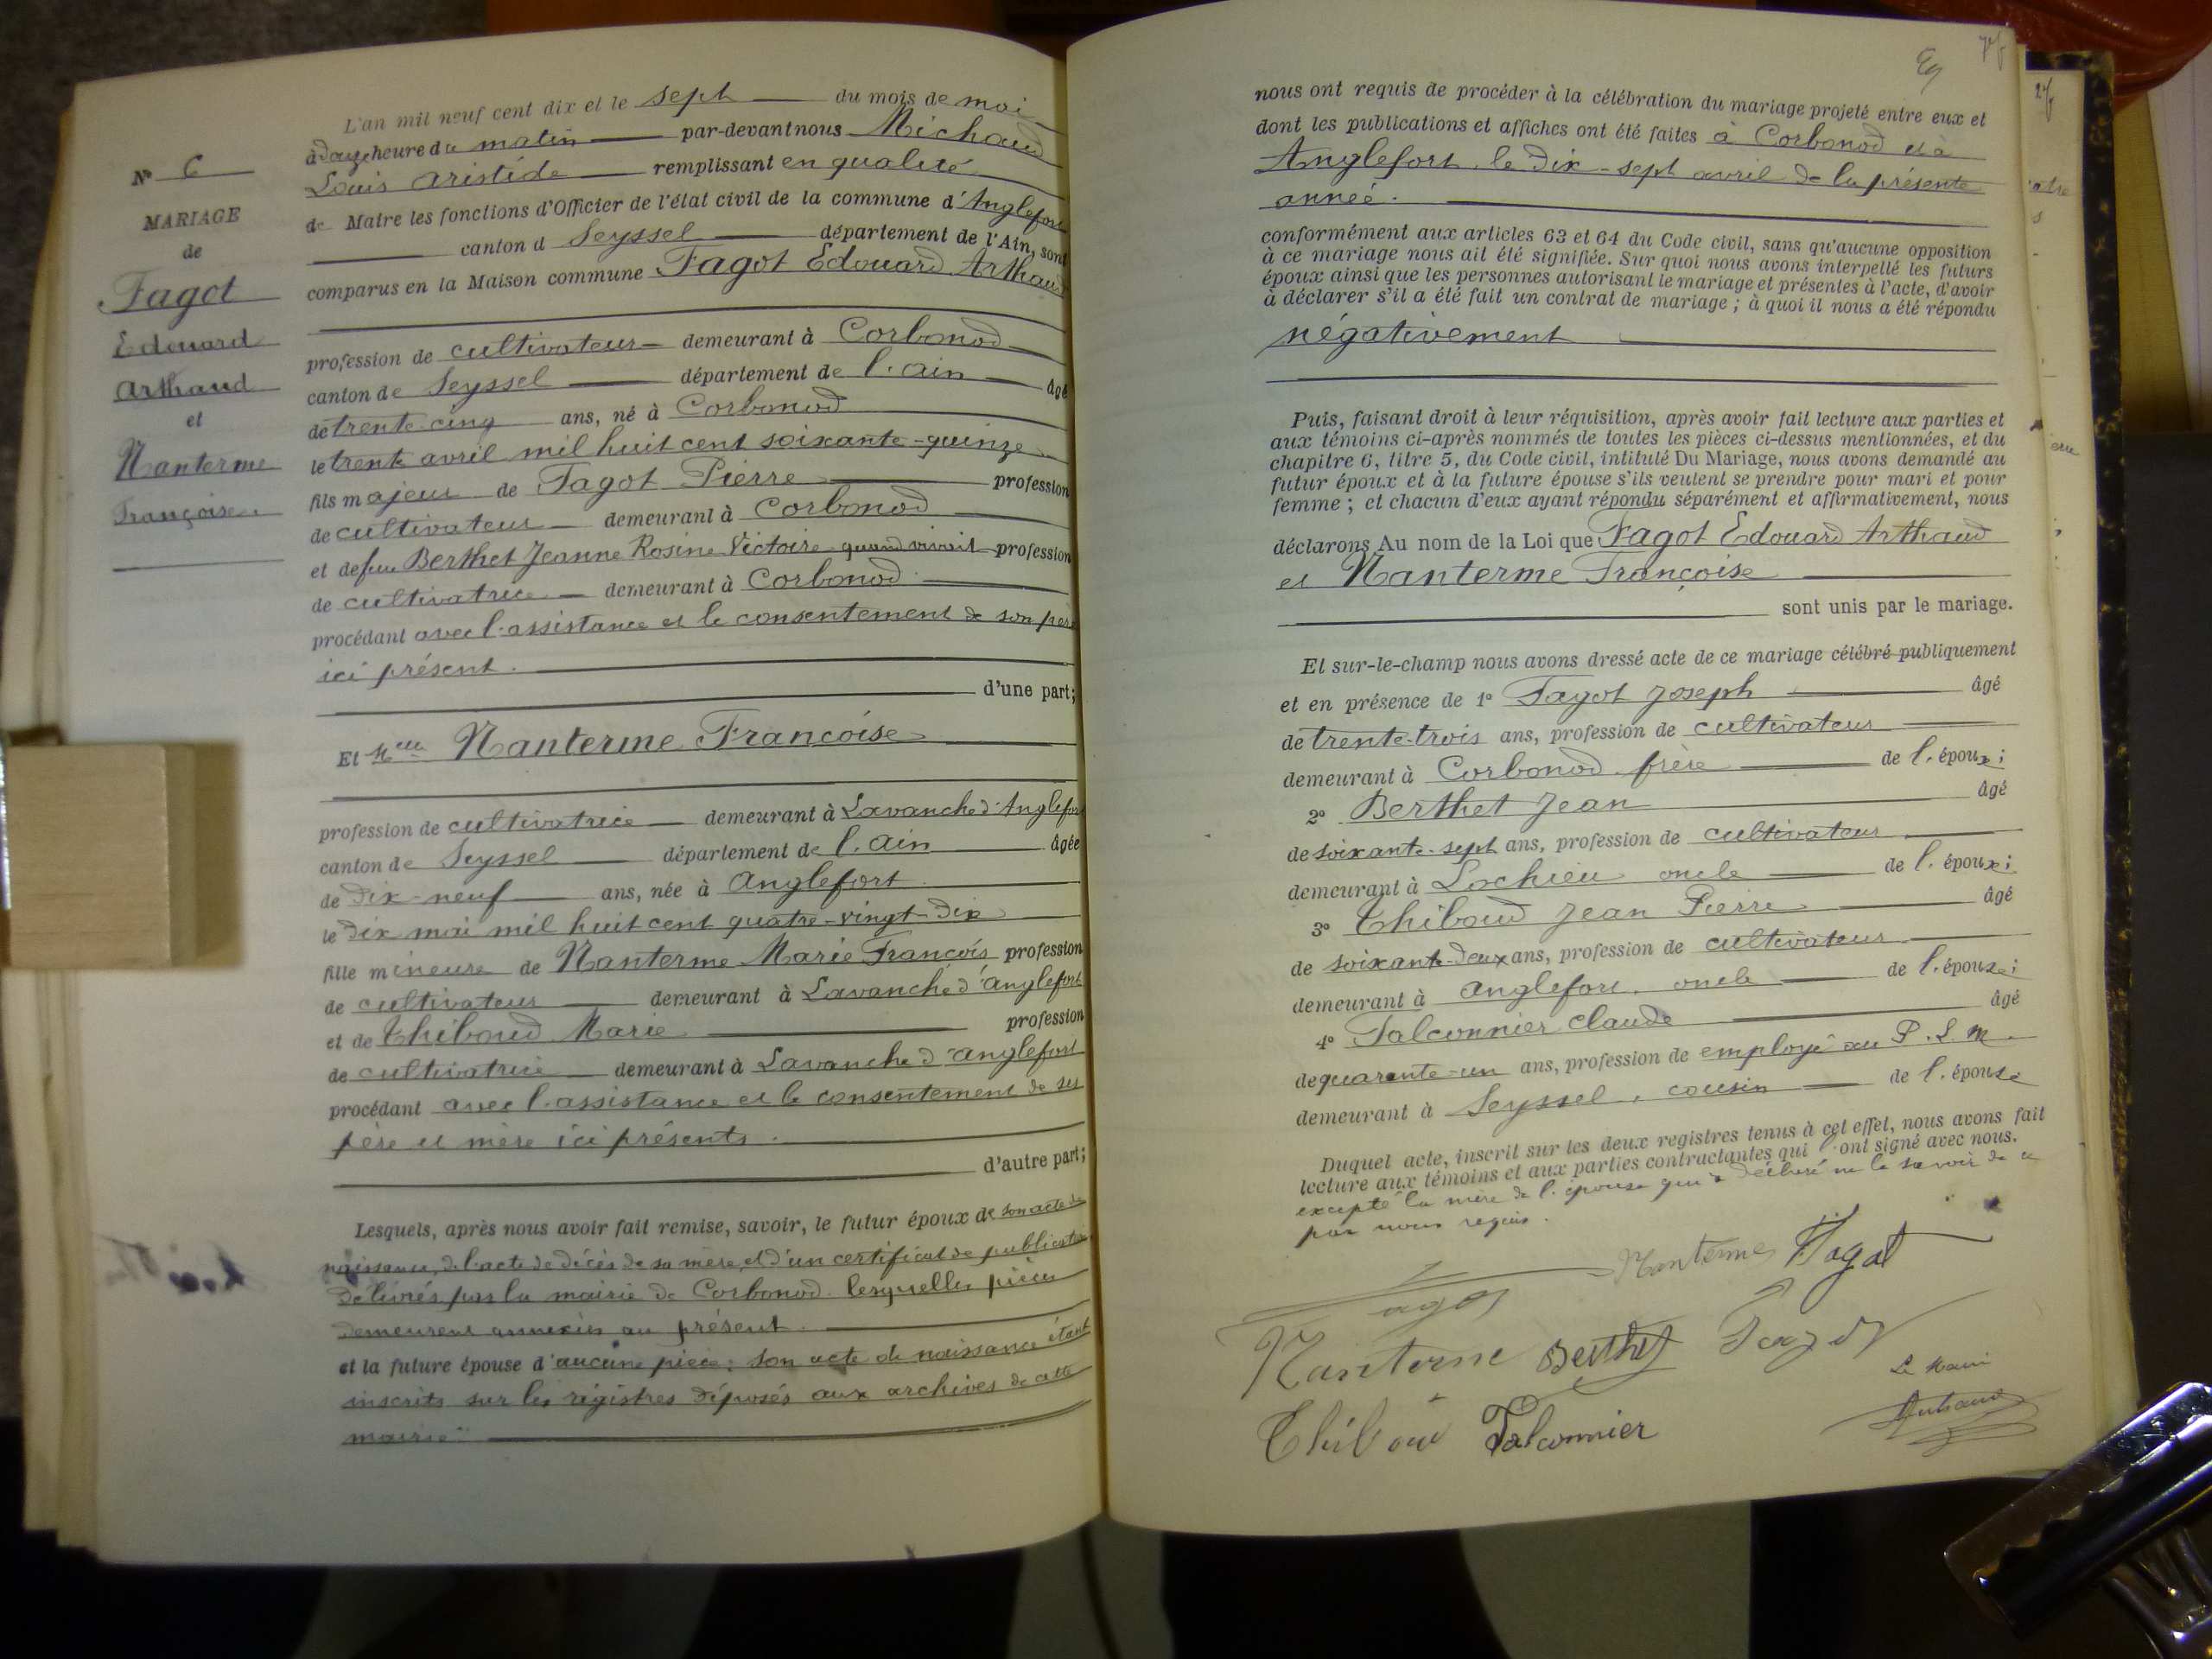 L'an mil neuf cent dix et le sept du mois de mai
à heure du matin par-devant nous Michaud
Louis Aristide remplissant en qualité
de Maire les fonctions d'Officier de l'état civil de la commune d'Anglefort
canton d Seyssel département de l'Ain, sont
comparus en la Maison commune Fagot Edouard Arthaud
profession de cultivateur demeurant à Corbonod
canton de Seyssel département de l'Ain âgé
de trente-cinq ans, né à Corbonod
le trente avril mil huit cent soixante-quinze
fils majeur de Fagot Pierre profession
de cultivateur demeurant à Corbonod
et de feu Berthet Jeanne Rosine Victoire quand vivait profession
de cultivatrice demeurant à Corbonod
procédant avec l'assistance et le consentement de son père
ici présent.
d'une part;
Et Melle Nanterme Françoise
profession de cultivatrice demeurant à Lavanche d'Anglefort
canton de Seyssel département de l'Ain âgée
de dix-neuf ans, née à Anglefort
le dix mai mil huit cent quatre-vingt-dix
fille mineure de Nanterme Marie François profession
de cultivateur demeurant à Lavanche d'Anglefort
et de Thiboud Marie profession
de cultivatrice demeurant à Lavanche d'Anglefort
procédant avec l'assistance et le consentement de ses
père et mère ici présents.
d'autre part;
Lesquels, après nous avoir fait remise, savoir, le futur époux de son acte de
naissance, de l'acte de décès de sa mère, et d'un certificat de publication
délivrés par la mairie de Corbonod lesquelles pièces
demeurent annexées au présent.
et la future épouse d'aucune pièce; son acte de naissance étant
inscrits sur les régistres déposés aux archives de cette
mairie
No 6
MARIAGE
de
Fagot
Edouard
Arthaud
et
Nanterme
Françoise.
nous ont requis de procéder à la célébration du mariage projeté entre eux et
dont les publications et affiches ont été faites à Corbonod et à
Anglefort le dix-sept avril de la présente
année.
conformément aux articles 63 et 64 du Code civil, sans qu'aucune opposition
à ce mariage nous ait été signifiée. Sur quoi nous avons interpellé les futurs
époux ainsi que les personnes autorisant le mariage et présentes à l'acte, d'avoir
à déclarer s'il a été fait un contrat de mariage ; à quoi il nous a été répondu
négativement
Puis, faisant droit à leur réquisition, après avoir fait lecture aux parties et
aux témoins ci-après nommés de toutes les pièces ci-dessus mentionnées, et du
chapitre 6, titre 5, du Code civil, intitulé Du Mariage, nous avons demandé au
futur époux et à la future épouse s'ils veulent se prendre pour mari et pour
femme ; et chacun d'eux ayant répondu séparément et affirmativement, nous
déclarons Au nom de la Loi que Fagot Edouard Arthaud
et Nanterme Françoise
sont unis par le mariage.
Et sur-le-champ nous avons dressé acte de ce mariage célébré publiquement
et en présence de 1o Fagot Joseph âgé
de trente-trois ans, profession de cultivateur
demeurant à Corbonod frère de l'époux;
2o Berthet Jean âgé
de soixante-sept ans, profession de cultivateur
demeurant à Lochieu oncle de l'époux;
3o Thiboud Jean Pierre âgé
de soixante-deux ans, profession de cultivateur
demeurant à Anglefort, oncle de l'épouse;
4o Falconnier Claude âgé
de quarante-un ans, profession de employé au P.L.M.
demeurant à Seyssel, cousin de l'épouse
Duquel acte, inscrit sur les deux registres tenus à cet effet, nous avons fait
lecture aux témoins et aux parties contractantes qui ont signé avec nous.
excepté la mère de l'épouse qui a déclaré ne le savoir de ce
par nous requis.
Nanterme Fagot
Fagot
Nanterme Berthet Fagot
Le Maire
Thiboud Falconnier